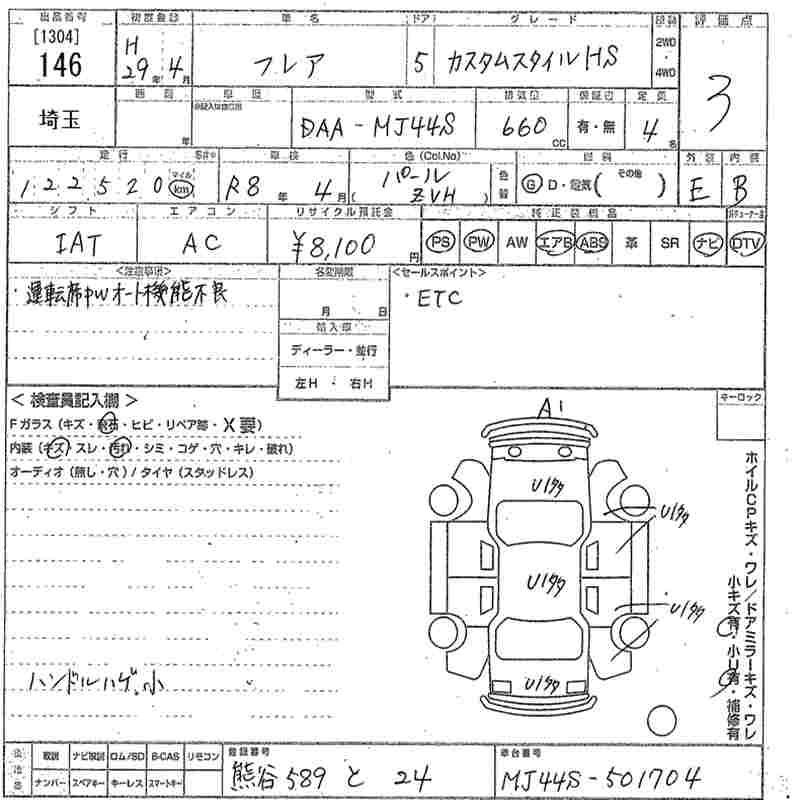 出品番号 初度登録 車名 ドア グレード 駆動 評価点
[1304] 146 H 29年4月 フレア 5 カスタムスタイルHS 2WD・4WD 3
埼玉 年 車歴 型式 排気量 定員
DAA-MJ44S 660cc 有・無 4名
走行 車検 色(Col.No) 色替 燃料 外装 内装
122520 マイル km R8年4月 パール ZVH G D・電気 (その他) E B
シフト エアコン リサイクル預託金 純正装備品
IAT AC ¥8,100円 PS PW AW エアB ABS 革 SR ナビ DTV
<注意事項> 名変期限 <セールスポイント>
・運転席PWオート機能不良 月 日 ・ETC
輸入車
ディーラー・並行
左H・右H
<検査員記入欄> キーロック
Fガラス(キズ・飛石・ヒビ・リペア跡・X要)
内装(キズ・スレ・汚れ・シミ・コゲ・穴・キレ・破れ)
オーディオ(無し・穴)/タイヤ(スタッドレス)
A1
Uイタタ
Uイタタ
Uイタタ
Uイタタ
Uイタタ
ホイルCPキズ・ワレ/ドアミラーキズ・ワレ
小キズ有・小U有・補修有
ハンドルハゲ小
取説 ナビ取説 ロム/SD B-CAS リモコン 登録番号 車台番号
ナンバー スペアキー キーレス スマートキー 熊谷 589 と 24 MJ44S-501704